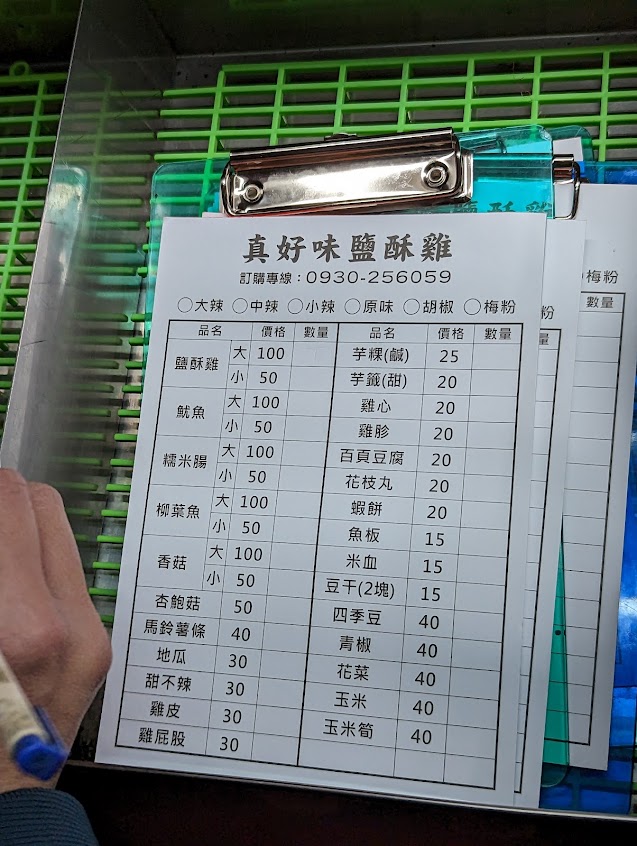 真好味鹽酥雞
訂購專線：0930-256059
○大辣 ○中辣 ○小辣 ○原味 ○胡椒 ○梅粉
品名 價格 數量 品名 價格 數量
鹽酥雞 大 100 芋粿(鹹) 25
小 50 芋籤(甜) 20
魷魚 大 100 雞心 20
小 50 雞胗 20
糯米腸 大 100 百頁豆腐 20
小 50 花枝丸 20
柳葉魚 大 100 蝦餅 20
小 50 魚板 15
香菇 大 100 米血 15
小 50 豆干(2塊) 15
杏鮑菇 50 四季豆 40
馬鈴薯條 40 青椒 40
地瓜 30 花菜 40
甜不辣 30 玉米 40
雞皮 30 玉米筍 40
雞屁股 30
鹽酥雞
粉
量
梅粉
數量